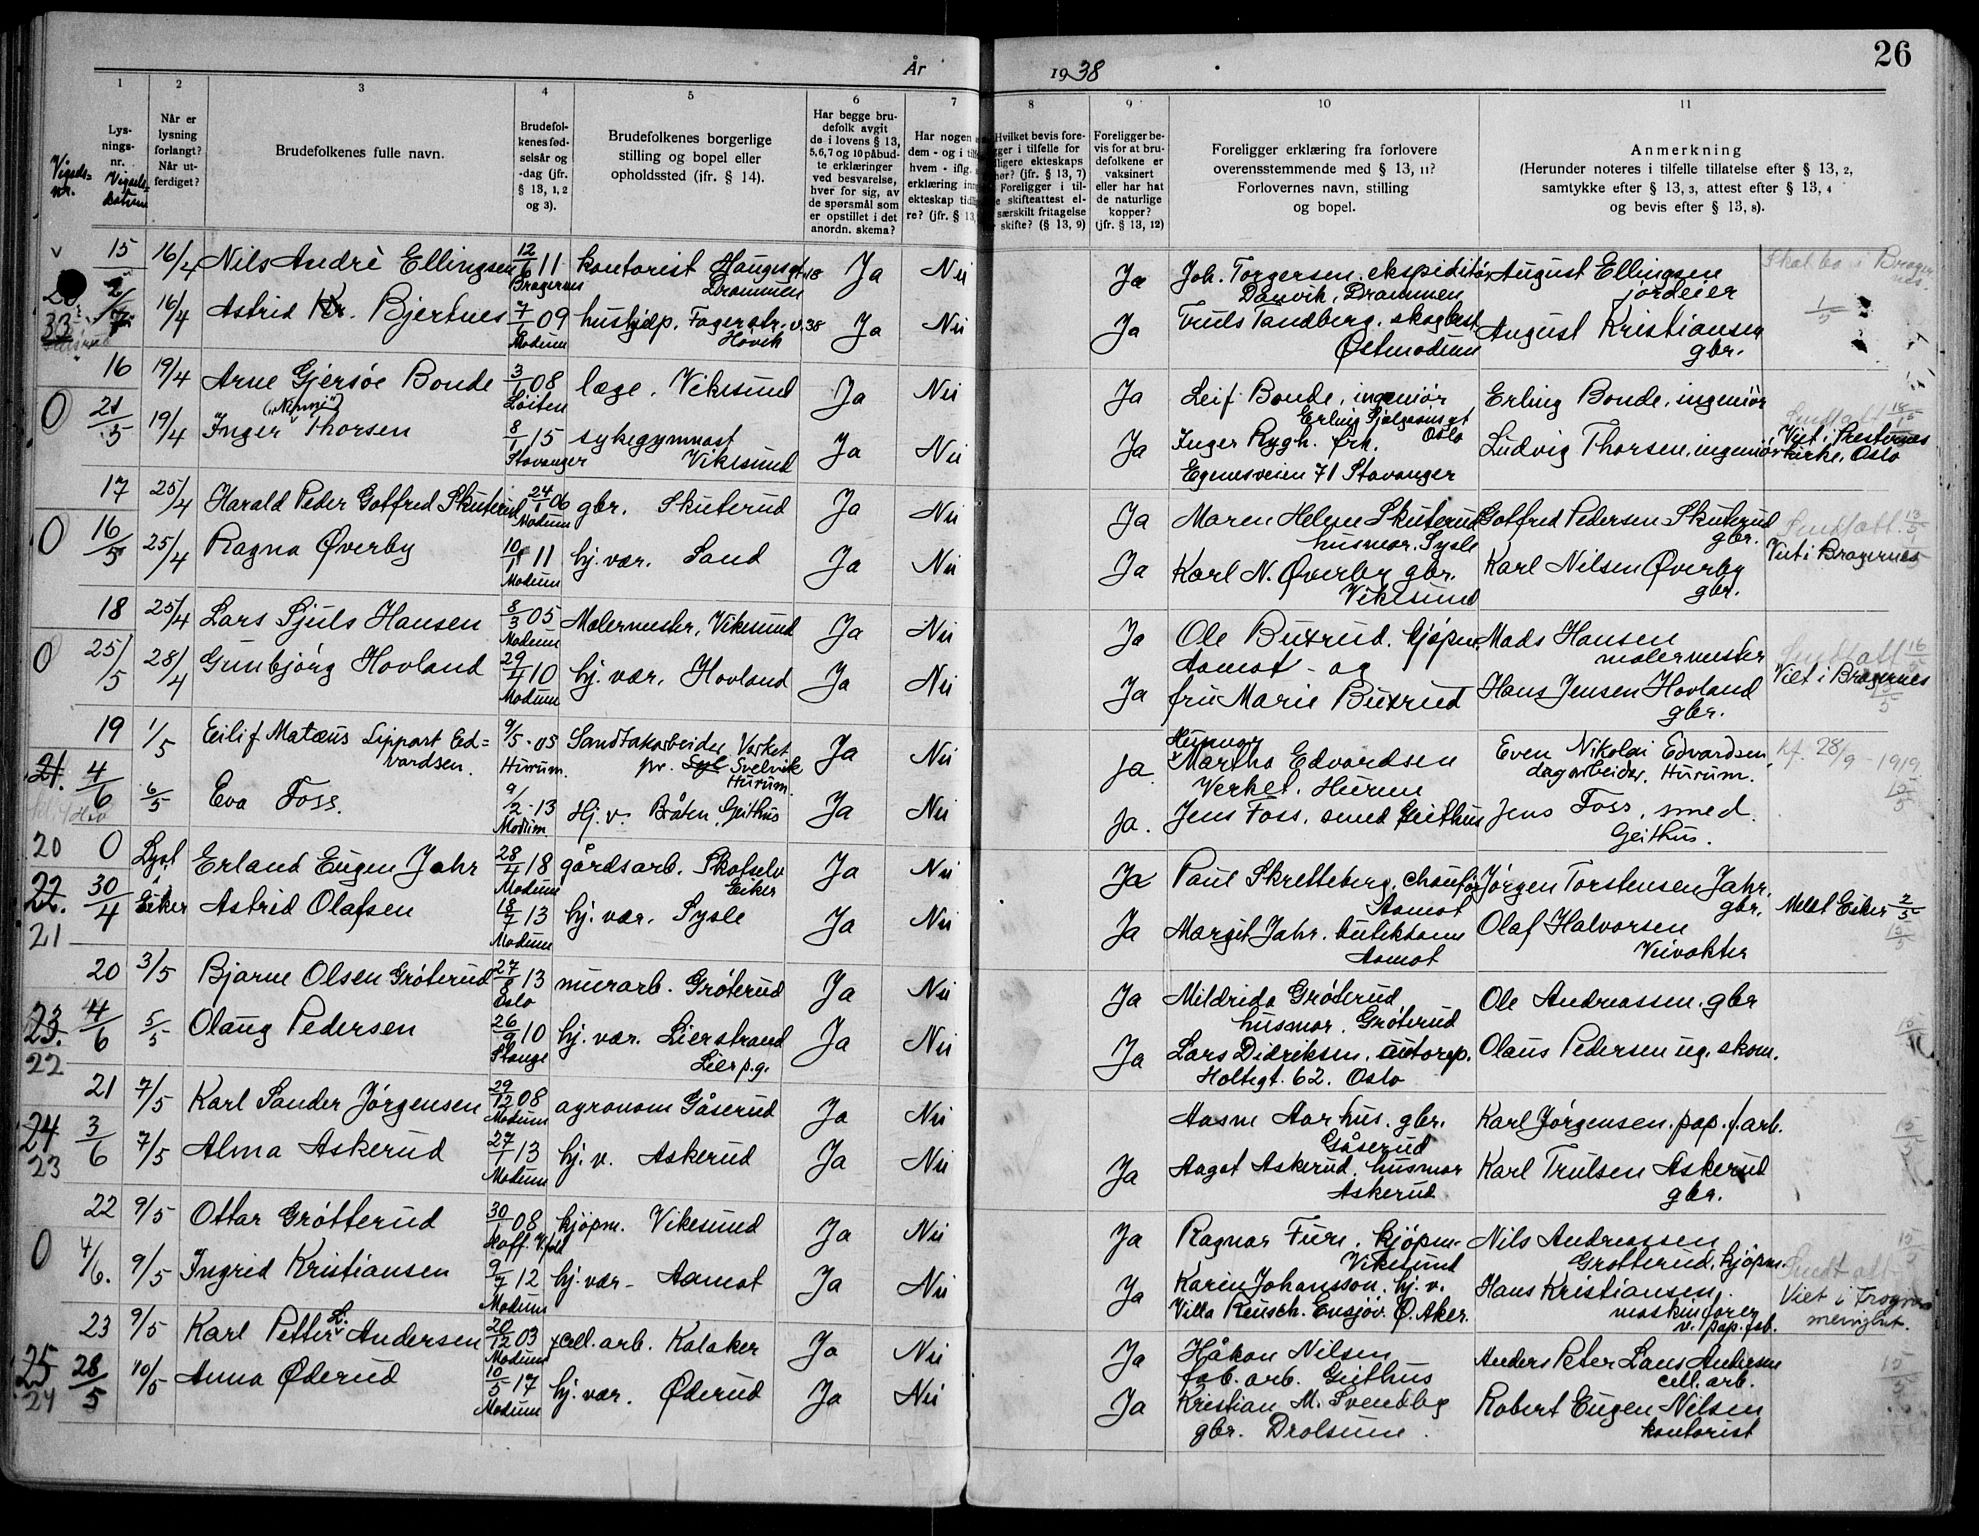 26
År 1938
1 2 3 4 5 6 7 8 9 10 11
Vigsels-
nr.
Lys-
nings-
nr.
Vigsels-
datum
Når er
lysning
forlangt?
Når ut-
ferdiget?
Brudefolkenes fulle navn.
Brudefol-
kenes fød-
selsår og
-dag (jfr.
§ 13, 1, 2
og 3).
Brudefolkenes borgerlige
stilling og bopel eller
opholdssted (jfr. § 14).
Har begge bru-
defolk avgit
de i lovens § 13,
5, 6, 7 og 10 påbud-
te erklæringer
ved besvarelse,
hver for sig, av
de spørsmål som
er opstillet i det
anordn. skema?
Har nogen
dem - og i
hvem - iflg.
erklæring
ekteskap
re? (jfr. § 13,
Hvilket bevis fore-
ligger i tilfelle for
tidligere ekteskaps
(jfr. § 13, 7)
Foreligger i til-
skifteattest el-
særskilt fritagelse
skifte? (§ 13, 9)
Foreligger be-
vis for at bru-
defolkene er
vaksinert
eller har hat
de naturlige
kopper?
(jfr. § 13, 12)
Foreligger erklæring fra forlovere
overensstemmende med § 13, 11?
Forlovernes navn, stilling
og bopel.
Anmerkning
(Herunder noteres i tilfelle tillatelse efter § 13, 2,
samtykke efter § 13, 3, attest efter § 13, 4
og bevis efter § 13, 8).
15 16/4 Nils Andrè Ellingsen 12/6 11 Bragernes kontorist Haugesgt. 18 Drammen Ja Nei Ja Joh. Torgersen. ekspeditør Danvik, Drammen August Ellingsen jordeier
16/4 Astrid Kr. Bjertnes 7/7 09 Modum hushjelp. Fagerstr. v. 38 Hovik Ja Nei Ja Truls Tandberg. skogbest. Østmodum August Kristiansen gbr. 1/5
16 19/4 Arne Gjersøe Bonde 3/1 08 Løiten læge. Vikesund Ja Nei Ja Leif Bonde, ingeniør Erling Skjalgssonsgt Oslo Erling Bonde, ingeniør
0 21/5 19/4 Inger ("Nenni") Thorsen 8/1 15 Stavanger sykegymnast Vikesund Ja Nei Ja Inger Rygh. frk. Egnesveien 71 Stavanger Ludvig Thorsen, ingeniør Viet i Prestenes kirke, Oslo
17 25/4 Harald Peder Gotfred Skuterud 24/1 06 Modum gbr. Skuterud Ja Nei Ja Maren Helene Skuterud husmor. Sysle Gotfred Pedersen Skuterud gbr. Sendt att. 13/5
0 16/5 25/4 Ragna Øverby 10/1 11 Modum hj. vær. Sand Ja Nei Ja Karl N. Øverby gbr. Vikesund Karl Nilsen Øverby gbr. Viet i Bragernes
18 25/4 Lars Sjuls Hansen 8/3 05 Modum Malermester, Vikesund Ja Nei Ja Ole Buxrud. kjøpm. Aamot - og Mads Hansen malermester Sendt att 16/5
0 25/5 28/4 Gunbjörg Hovland 29/4 10 Modum hj. vær, Hovland Ja Nei Ja fru Marie Buxrud Hans Jensen Hovland gbr. Viet i Bragernes
19 1/5 Eilif Matæus Lippart Ed=
vardsen. 9/5 - 05 Hurum. Sandtakarbeider Verket pr. Svelvik Hurum. Ja Nei Ja Martha Edvardsen Verket. Hurum Even Nikolai Edvardsen, dagarbeider, Hurum. kf. 28/9 - 1919
21. 4/6 6/5 Eva Foss. 9/2 - 13 Modum. Hj. v. Bråten, Geithus Ja Nei Ja. Jens Foss, smed Geithus Jens Foss, smed. Geithus. 15/5
20 0 Lyst i Eiker Erland Eugen Jahr 28/4 18 Modum gårdsarb. Skotselv Eiker Ja Nei Ja Paul Skretteberg, chauffør Aamot Jørgen Torstensen Jahr. gbr. Meldt Eiker 2/5
22. 21 30/4 Astrid Olafsen 18/7 13 Modum hj. vær. Sysle Ja Nei Ja Margit Jahr. butikkdame Aamot Olaf Halvorsen Veivokter 15/5
20 3/5 Bjarne Olsen Grøterud 27/8 13 Oslo murarb. Grøterud Ja Nei Ja Mildrida Grøterud, husmor. Grøterud Ole Andreassen. gbr
23. 22 4/6 5/5 Olaug Pedersen 26/9 10 Stange hj. vær. Lierstrand Lier p.g. Ja Nei Ja Lars Didriksen. autorep. Holtegt. 62. Oslo Olaus Pedersen ug. skom.
21 7/5 Karl Sander Jørgensen 29/12 08 Modum agronom Gåserud Ja Nei Aasne Aarhus. gbr. Gåserud Karl Jørgensen. pap. f. arb.
24 23 3/6 7/5 Alma Askerud 27/1 13 Modum hj. v. Askerud Ja Nei Ja Aagot Askerud. husmor Askerud Karl Trulsen Askerud gbr.
22 9/5 Ottar Grøtterud 30/1 08 Hoff. V.fold kjøpm. Vikesund Ja Nei Ja Ragnar Fure. kjøpm. Vikesund Nils Andreassen Grøtterud. kjøpm.
0 4/6. 9/5 Ingrid Kristiansen 9/7 12 Modum hj. vær - Aamot Ja Nei Ja Karin Johansson. hj. v. Villa Reusch. Ensjøv. Ø. Aker. Hans Kristiansen, maskinfører v. pap. fab. Sendt att Viet i Frogner menighet.
23 9/5 Karl Petter L. Andersen 20/12 03 Modum cell. arb. Kalaker Ja Nei Ja Håkon Nilsen fab. arb. Geithus Anders Peter Lans Andersen cell. arb.
25 24 28/5 10/5 Anna Øderud 10/5 17 Modum hj. vær. Øderud Ja Nei Ja Kristian M. Svendby gbr. Drolsum. Robert Eugen Nilsen kontorist 15/5